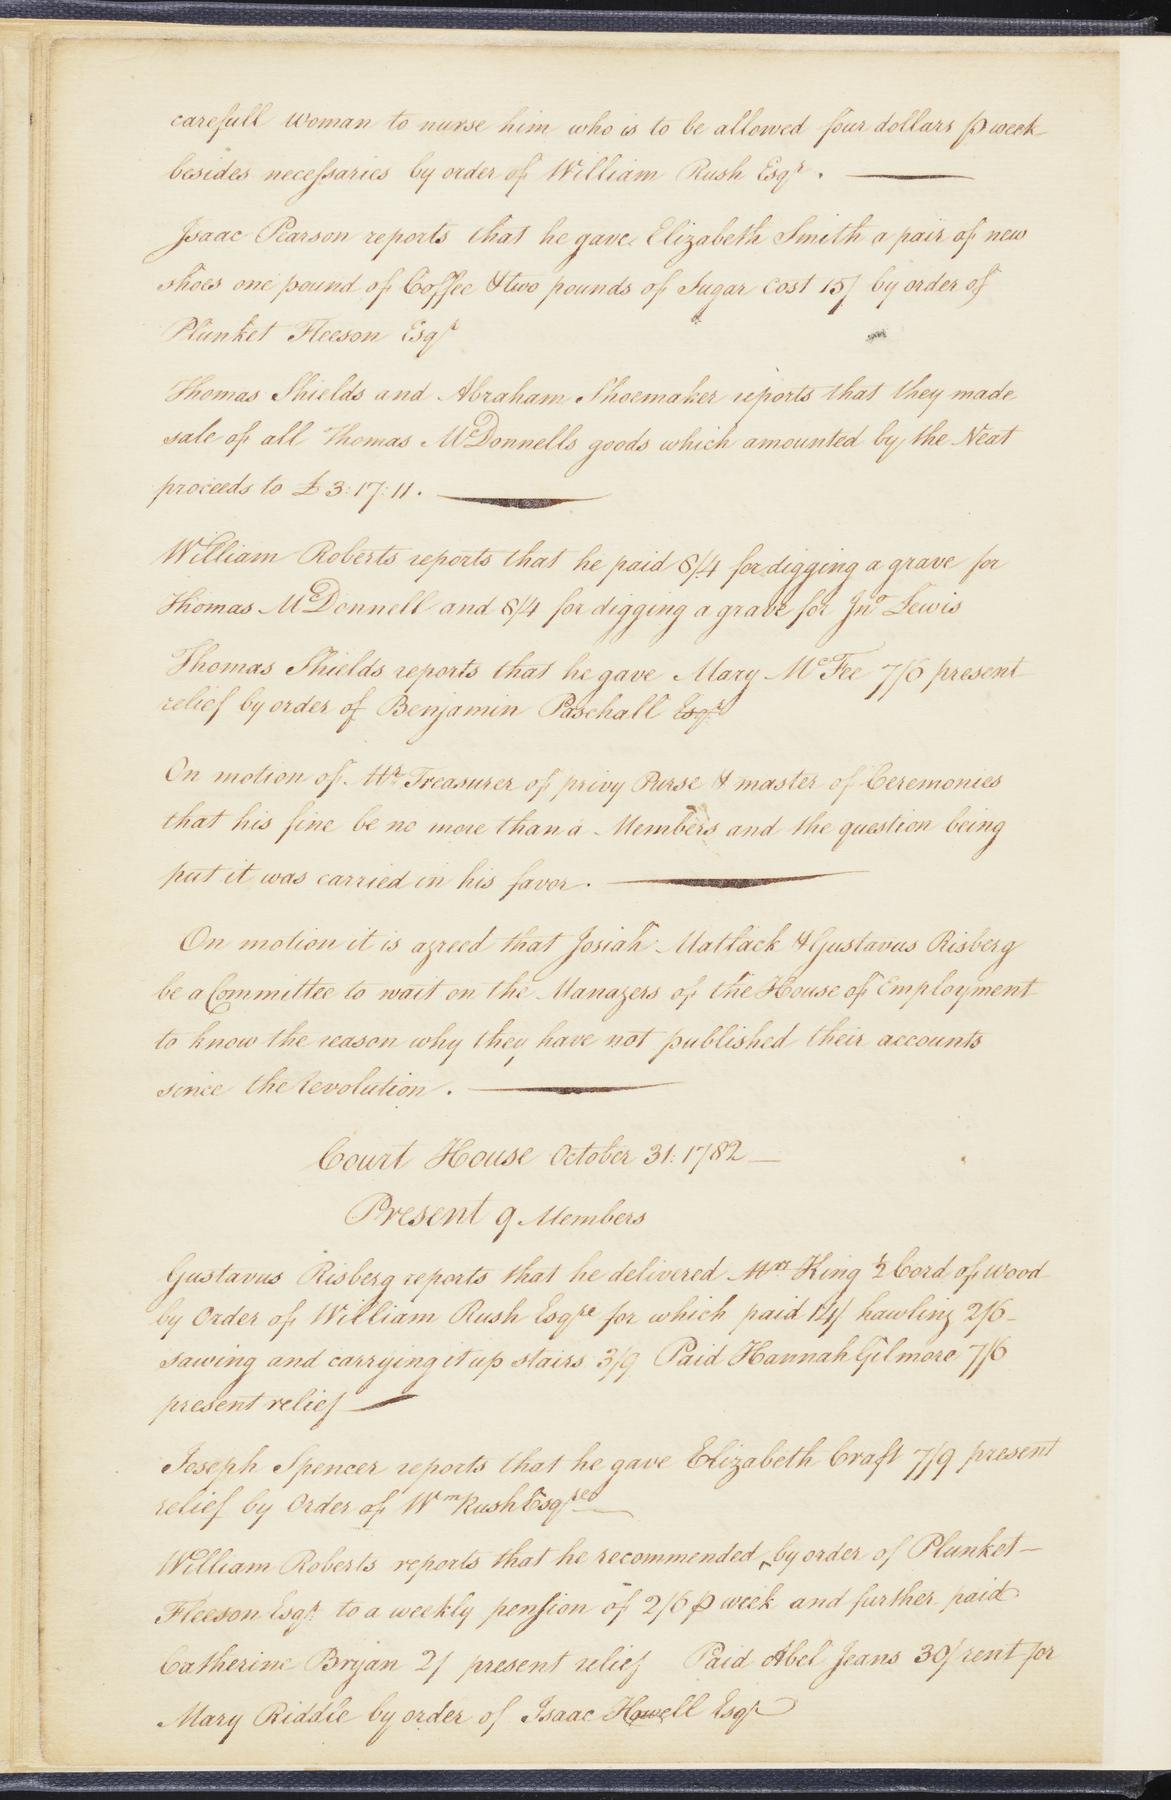 carefull woman to nurse him who is to be allowed four dollars ⅌ week
besides necessaries by order of William Rush Esqr.
Isaac Pearson reports that he gave Elizabeth Smith a pair of new
shoes one pound of Coffee & two pounds of Sugar Cost 15/ by order of
Plunket Fleeson Esqr
Thomas Shields and Abraham Shoemaker reports that they made
sale of all Thomas McDonnells goods which amounted by the Neat
proceeds to £3:17:11.
William Roberts reports that he paid 8/4 for digging a grave for
Thomas McDonnell and 8/4 for digging a grave for Jno Lewis
Thomas Shields reports that he gave Mary McFee 7/6 present
relief by order of Benjamin Paschall Esqr
On motion of Mr Treasurer of privy Purse & master of Ceremonies
that his fine be no more than a Members and the question being
put it was carried in his favor.
On motion it is agreed that Josiah Matlack & Gustavus Risberg
be a Committee to wait on the Managers of the House of Employment
to know the reason why they have not published their accounts
since the Revolution.
Court House October 31: 1782
Present 9 Members
Gustavus Risberg reports that he delivered Mrs King ½ Cord of wood
by Order of William Rush Esqre for which paid 14/ hawling 2/6
sawing and carrying it up stairs 3/9 Paid Hannah Gilmore 7/6
present relief
Joseph Spencer reports that he gave Elizabeth Craft 7/9 present
relief by Order of Wm Rush Esqre
William Roberts reports that he recommended ‸ by order of Plunket
Fleeson Esqr. to a weekly pension of 2/6 ⅌ week and further paid
Catherine Bryan 2/ present relief Paid Abel Jeans 30/ rent for
Mary Riddle by order of Isaac Howell Esqr